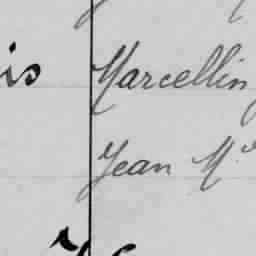 is Marcellin
Jean M.